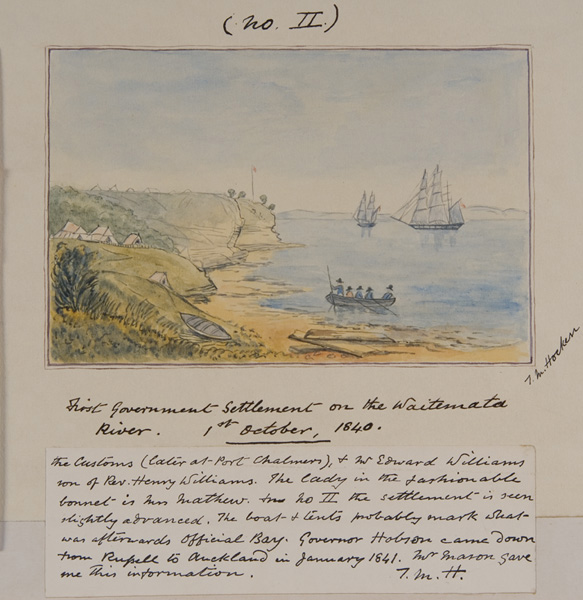 (No. II.)
T. M. Hocken
First Government Settlement on the Waitemata
River. 1st October, 1840.
the Customs (later at Port Chalmers), & Mr Edward Williams
son of Rev. Henry Williams. The lady in the fashionable
bonnet is Mrs Mathew. In No II the settlement is seen
slightly advanced. The boat & tents probably mark what
was afterwards Official Bay. Governor Hobson came down
from Russell to Auckland in January 1841. Mr Mason gave
me this information. T. M. H.